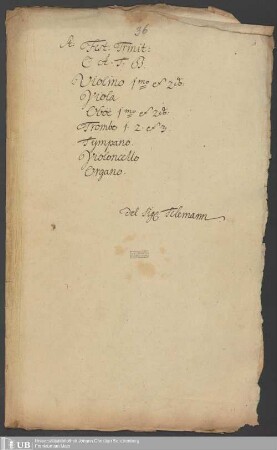 96
A. Fest. Trinit:
C. A. T. B.
Violino 1mo et 2do.
Viola
Oboe 1mo et 2do.
Trombe 1 2 et 3
Tympano.
Violoncello
Organo.
del Sigr Telemann
UB
Universitätsbibliothek Johann Christian Senckenberg
Frankfurt am Main